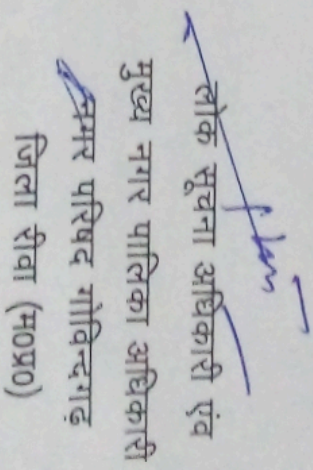 लोक सूचना अधिकारी एंव
मुख्य नगर पालिका अधिकारी
नगर परिषद गोविन्दगढ़
जिला रीवा (म०प्र०)